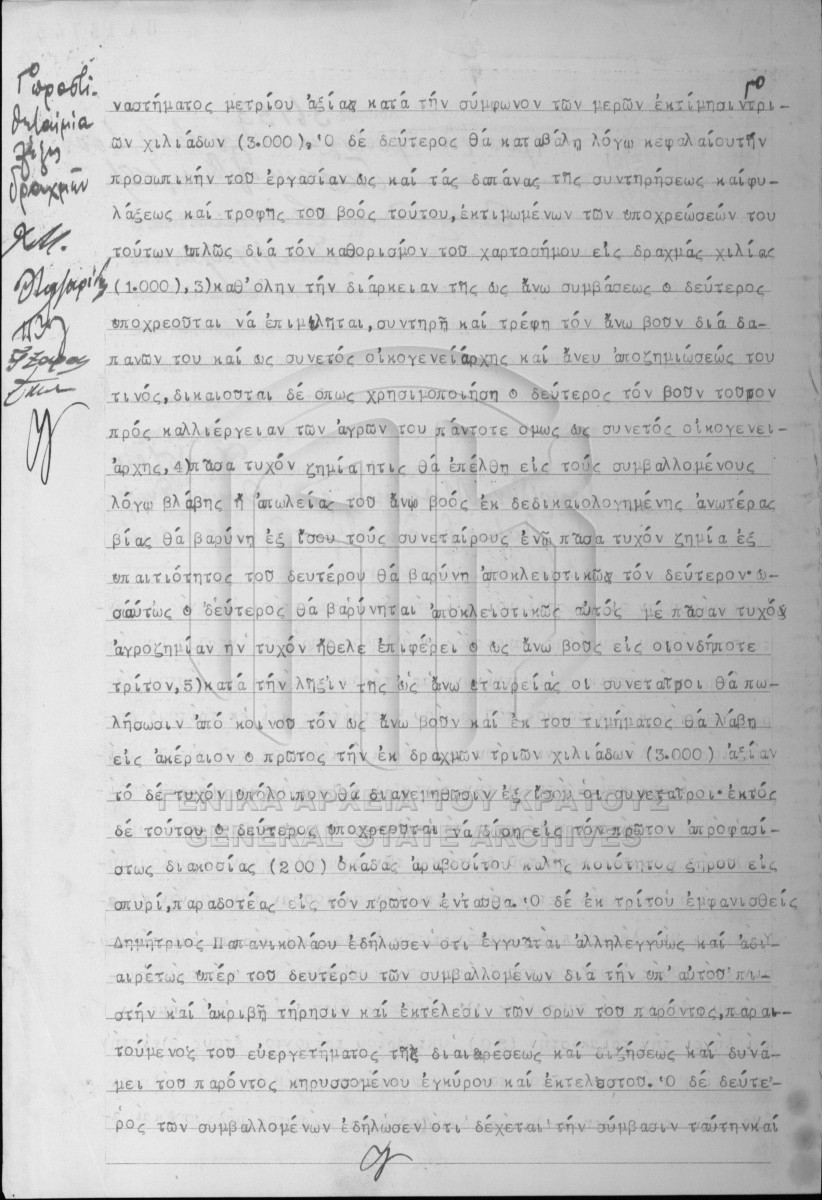 Γο προστί-
θεται μία
λέξις
δραχμῶν
Γο
ναστήματος μετρίου ἀξίας κατά τήν σύμφωνον τῶν μερῶν ἐκτίμησιν τρι-
ῶν χιλιάδων (3.000), Ὁ δέ δεύτερος θά καταβάλη λόγω κεφαλαίου τήν
προσωπικήν του ἐργασίαν ὡς καί τάς δαπάνας τῆς συντηρήσεως καί φυ-
λάξεως καί τροφῆς τοῦ βοός τούτου, ἐκτιμωμένων τῶν ὑποχρεώσεών του
τούτων ἁπλῶς διά τόν καθορισμόν τοῦ χαρτοσήμου εἰς δραχμάς χιλίας
(1.000), 3) καθ' ὅλην τήν διάρκειαν τῆς ὡς ἄνω συμβάσεως ὁ δεύτερος
ὑποχρεοῦται νά ἐπιμελῆται, συντηρῆ καί τρέφη τόν ἄνω βοῦν διά δα-
πανῶν του καί ὡς συνετός οἰκογενειάρχης καί ἄνευ ἀποζημιώσεώς του
τινός, δικαιοῦται δέ ὅπως χρησιμοποιήση ὁ δεύτερος τόν βοῦν τοῦτον
πρός καλλιέργειαν τῶν ἀγρῶν του πάντοτε ὅμως ὡς συνετός οἰκογενει-
άρχης, 4) πᾶσα τυχόν ζημία ἥτις θά ἐπέλθη εἰς τούς συμβαλλομένους
λόγω βλάβης ἤ ἀπωλείας τοῦ ἄνω βοός ἐκ δεδικαιολογημένης ἀνωτέρας
βίας θά βαρύνη ἐξ ἴσου τούς συνεταίρους ἐνῶ πᾶσα τυχόν ζημία ἐξ
ὑπαιτιότητος τοῦ δευτέρου θά βαρύνη ἀποκλειστικῶς τόν δεύτερον· ὡ-
σαύτως ὁ δεύτερος θά βαρύνηται ἀποκλειστικῶς αὐτός μέ πᾶσαν τυχόν
ἀγροζημίαν ἥν τυχόν ἤθελε ἐπιφέρει ὁ ὡς ἄνω βοῦς εἰς οἱονδήποτε
τρίτον, 5) κατά τήν λῆξιν τῆς ὡς ἄνω ἑταιρείας οἱ συνεταῖροι θά πω-
λήσωσιν ἀπό κοινοῦ τόν ὡς ἄνω βοῦν καί ἐκ τοῦ τιμήματος θά λάβη
εἰς ἀκέραιον ὁ πρῶτος τήν ἐκ δραχμῶν τριῶν χιλιάδων (3.000) ἀξίαν
τό δέ τυχόν ὑπόλοιπον θά διανεμηθῶσιν ἐξ ἴσου οἱ συνεταῖροι· ἐκτός
δέ τούτου ὁ δεύτερος ὑποχρεοῦται νά δώση εἰς τόν πρῶτον ἀπροφασί-
στως διακοσίας (200) ὀκάδας ἀραβοσίτου καλῆς ποιότητος ξηροῦ εἰς
σπυρί, παραδοτέας εἰς τόν πρῶτον ἐνταῦθα. Ὁ δέ ἐκ τρίτου ἐμφανισθείς
Δημήτριος Παπανικολάου ἐδήλωσεν ὅτι ἐγγυᾶται ἀλληλεγγύως καί ἀδι-
αιρέτως ὑπέρ τοῦ δευτέρου τῶν συμβαλλομένων διά τήν ὑπ' αὐτοῦ πι-
στήν καί ἀκριβῆ τήρησιν καί ἐκτέλεσιν τῶν ὅρων τοῦ παρόντος, παραι-
τούμενος τοῦ εὐεργετήματος τῆς διαιρέσεως καί διζήσεως καί δυνά-
μει τοῦ παρόντος κηρυσσομένου ἐγκύρου καί ἐκτελεστοῦ. Ὁ δέ δεύτε-
ρος τῶν συμβαλλομένων ἐδήλωσεν ὅτι δέχεται τήν σύμβασιν ταύτην καί
ΓΕΝΙΚΑ ΑΡΧΕΙΑ ΤΟΥ ΚΡΑΤΟΥΣ
GENERAL STATE ARCHIVES